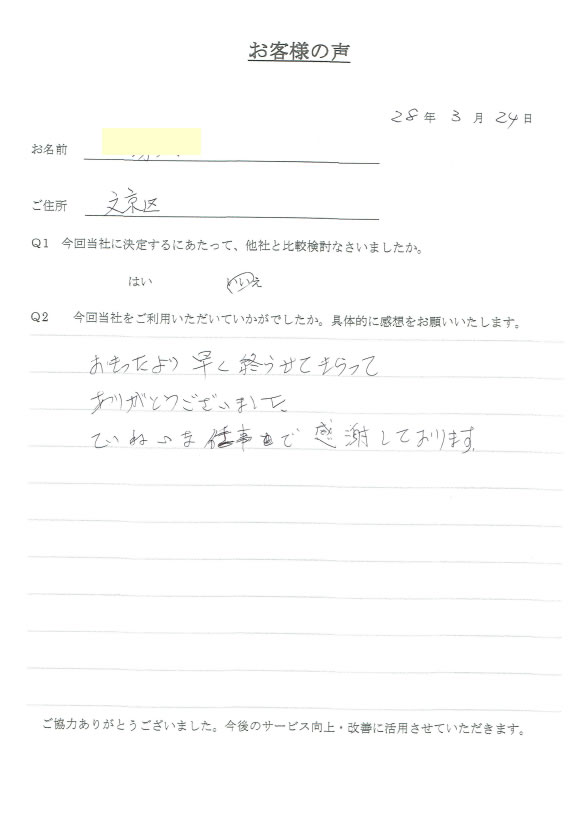 お客様の声
28年 3月 24日
お名前
ご住所 文京区
Q1 今回当社に決定するにあたって、他社と比較検討なさいましたか。
はい いいえ
Q2 今回当社をご利用いただいていかがでしたか。具体的に感想をお願いいたします。
おもったより早く終らせてもらって
ありがとうございました。
ていねいな仕事で感謝しております。
ご協力ありがとうございました。今後のサービス向上・改善に活用させていただきます。